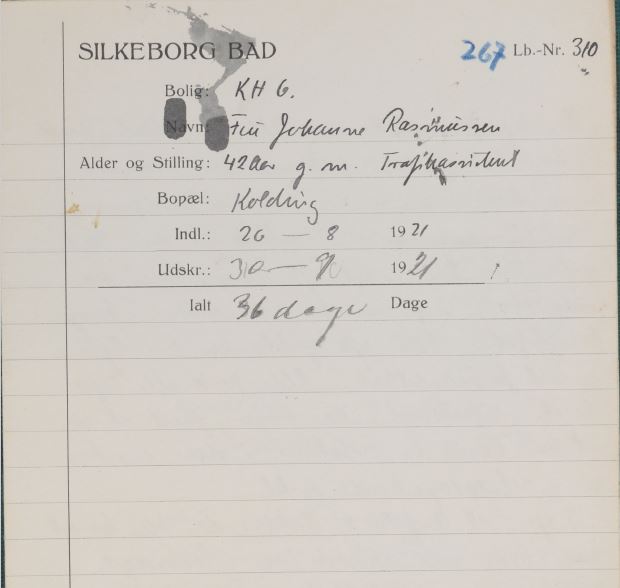 SILKEBORG BAD 267 Lb.-Nr. 310
Bolig: KH 6.
Navn: Fru Johanne Rasmussen
Alder og Stilling: 42 Aar g. m. Trafikassistent
Bopæl: Kolding
Indl.: 26 — 8 1921
Udskr.: 30 — 9 1921
Ialt 36 dage Dage